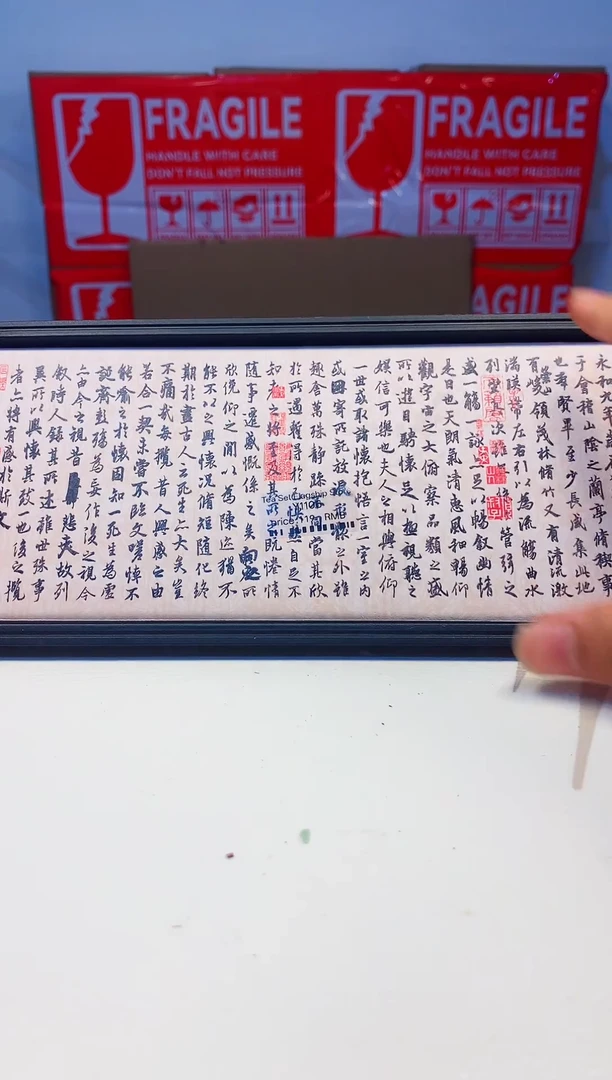 FRAGILE
HANDLE WITH CARE
DON'T FALL NOT PRESSURE
FRAGILE
HANDLE WITH CARE
DON'T FALL NOT PRESSURE
AGILE
永和九年歲
于會稽山陰之蘭亭脩稧事
也羣賢畢至少長咸集此地
有崇山峻領茂林脩竹又有清流激
湍暎帶左右引以為流觴曲水
列坐其次雖無絲竹管弦之
盛一觴一詠亦足以暢敘幽情
是日也天朗氣清惠風和暢仰
觀宇宙之大俯察品類之盛
所以遊目騁懷足以極視聽之
娛信可樂也夫人之相與俯仰
一世或取諸懷抱悟言一室之內
或因寄所託放浪形骸之外雖
趣舍萬殊靜躁不同當其欣
於所遇暫得於己怏然自足不
知老之將至及其所之既惓情
隨事遷感慨係之矣向之所
欣俛仰之間以為陳迹猶不
能不以之興懷況脩短隨化終
期於盡古人云死生亦大矣豈
不痛哉每攬昔人興感之由
若合一契未嘗不臨文嗟悼不
能喻之於懷固知一死生為虛
誕齊彭殤為妄作後之視今
亦由今之視昔悲夫故列
敘時人錄其所述雖世殊事
異所以興懷其致一也後之攬
者亦將有感於斯文
Tea Set Flagship Store
price: 1190 RMB